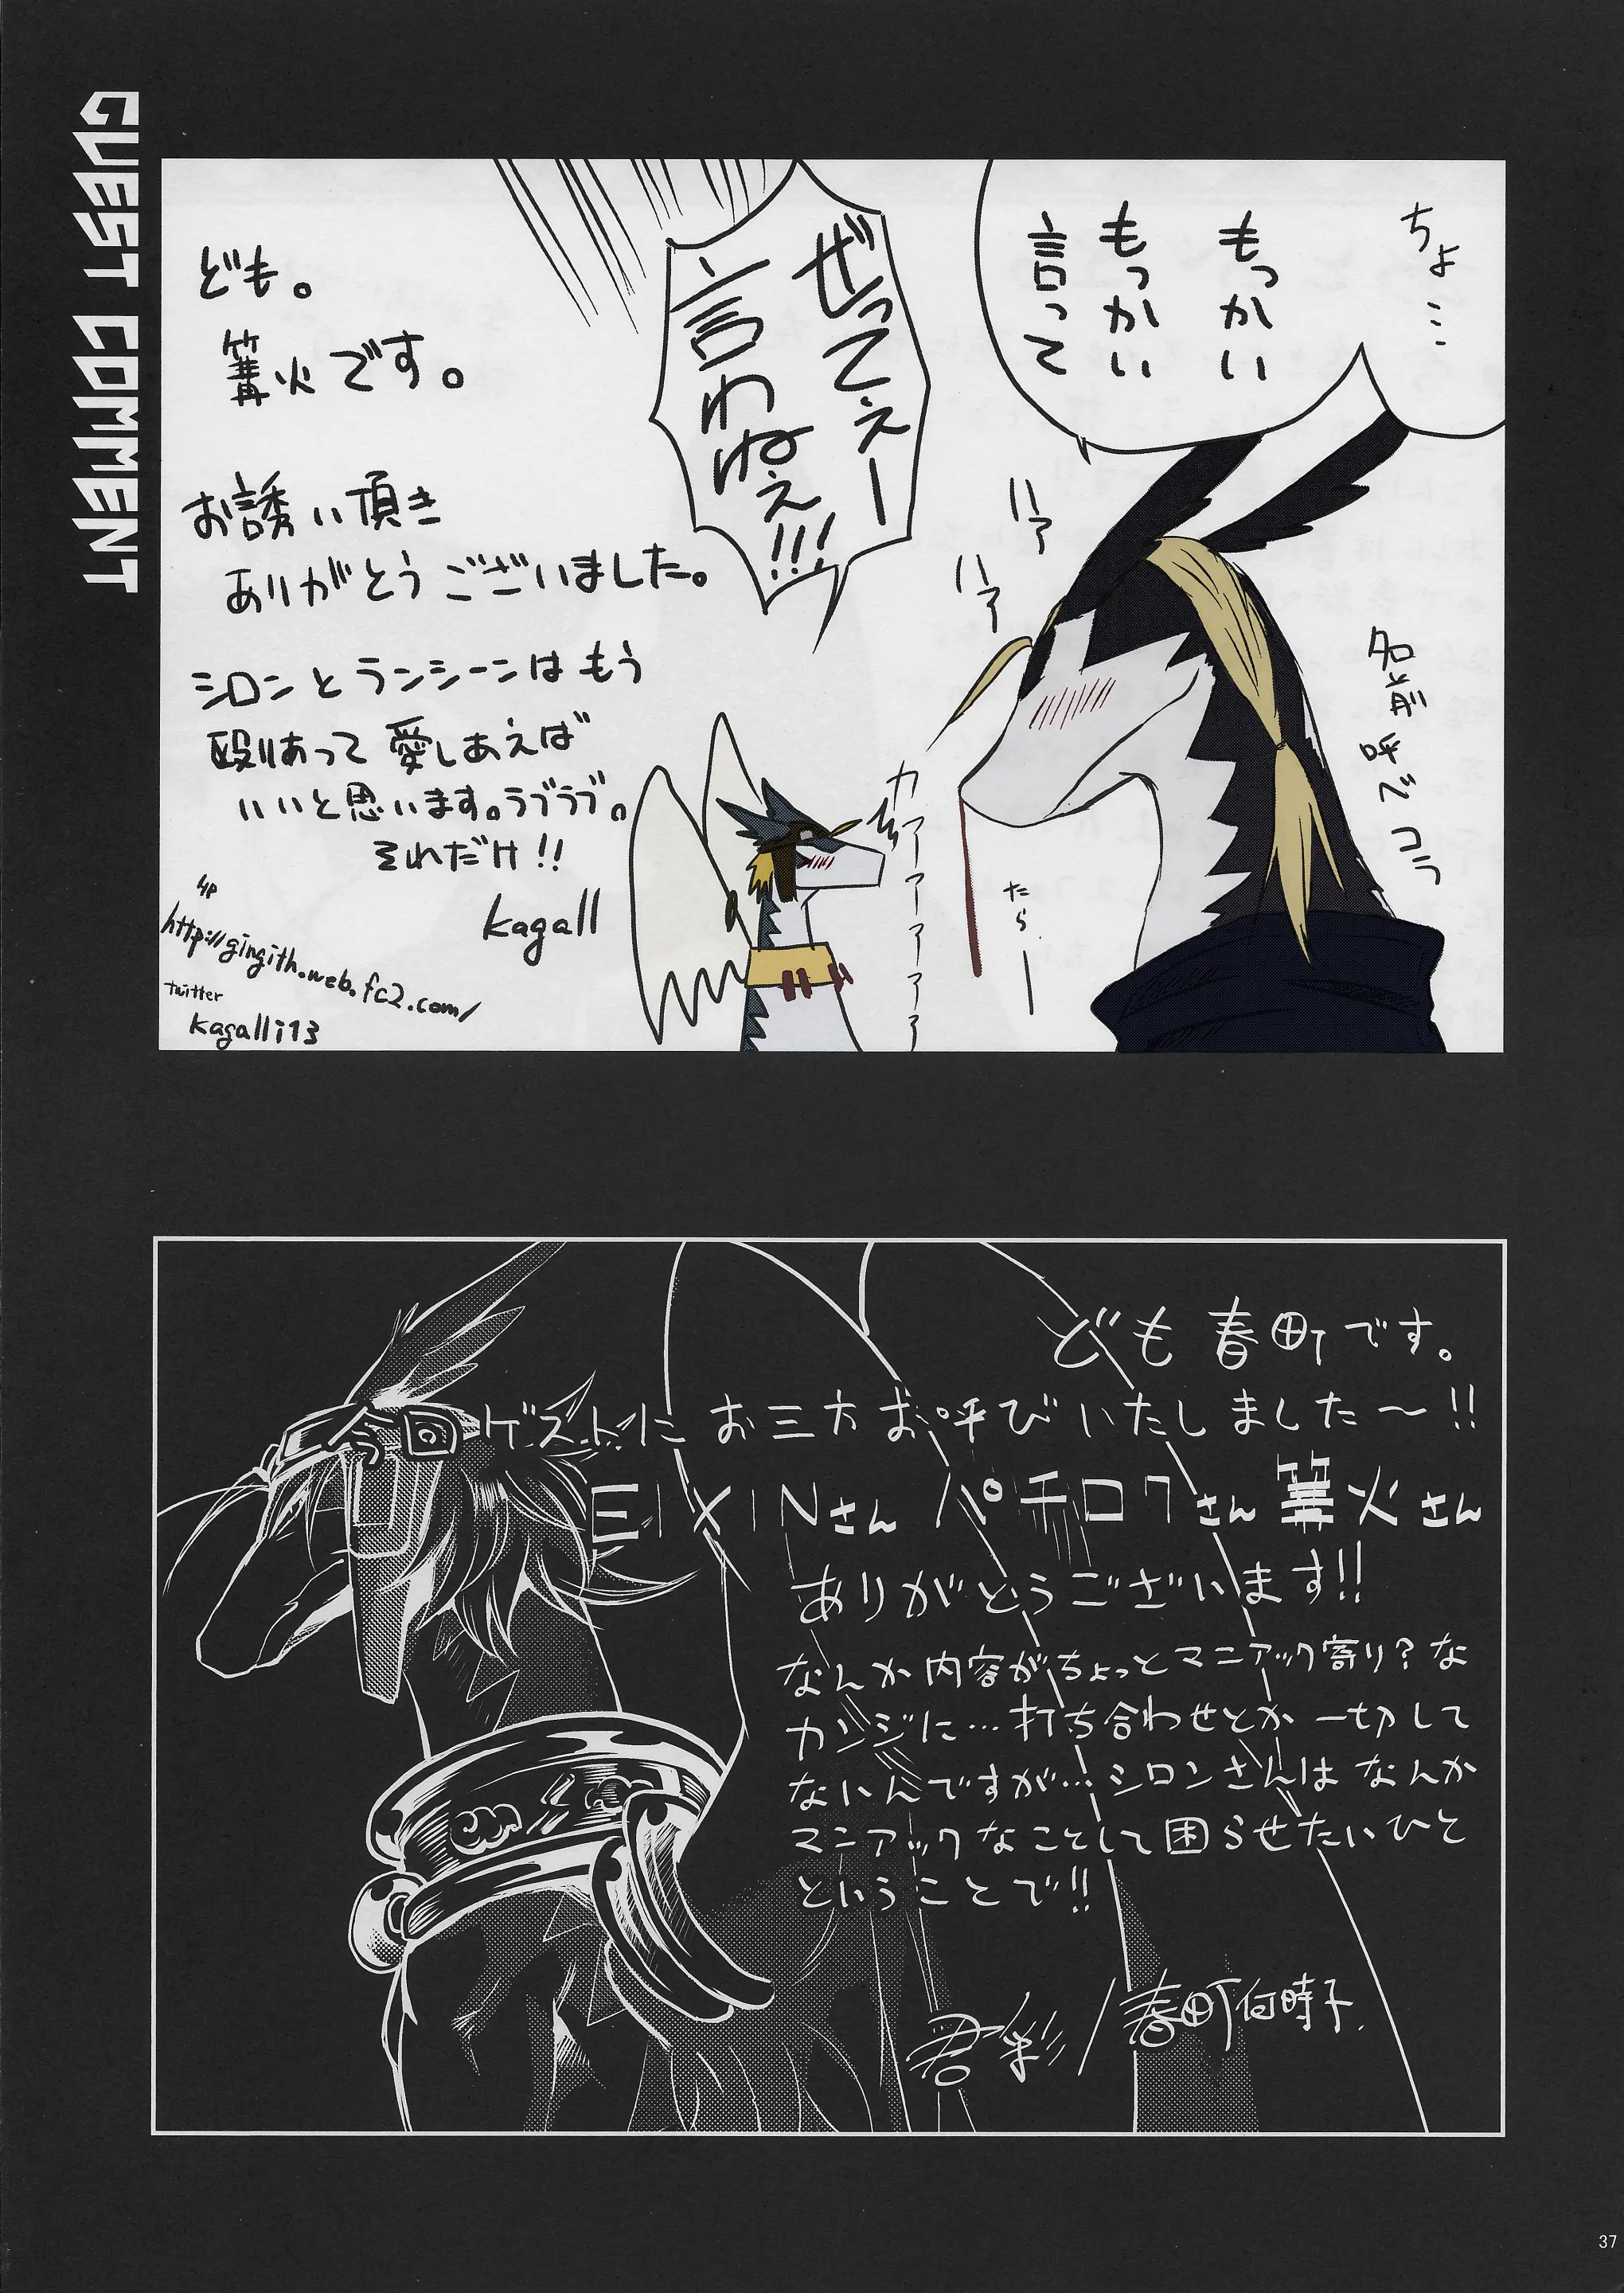 GUEST COMMENT
ちょ…
もっかい
もっかい
言って
ぜってぇー
言わねぇ!!!
ハァ
ハァ
名前呼べコラ
カァーァーァァァァ
たらー
ども。
篝火です。
お誘い頂き
ありがとうございました。
シロンとランシーンはもう
殴りあって愛しあえば
いいと思います。ラブラブ。
それだけ!!
kagall
HP
http://gingith.web.fc2.com/
twitter
kagalli13
ども春町です。
今回ゲストにお三方お呼びいたしました〜!!
EIXINさん パチロクさん 篝火さん
ありがとうございます!!
なんか内容がちょっとマニアック寄り?な
カンジに…打ち合わせとか一切して
ないんですが…シロンさんはなんか
マニアックなことして困らせたいひと
ということで!!
君彩/春町何時子.
37